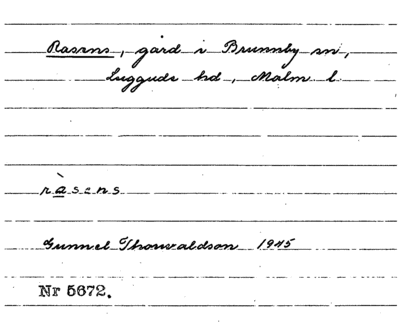 Rasens, gård i Brunnby sn,
Luggude hd, Malm l.
ràsens
Gunnel Thorwaldson 1945
Nr 5672.